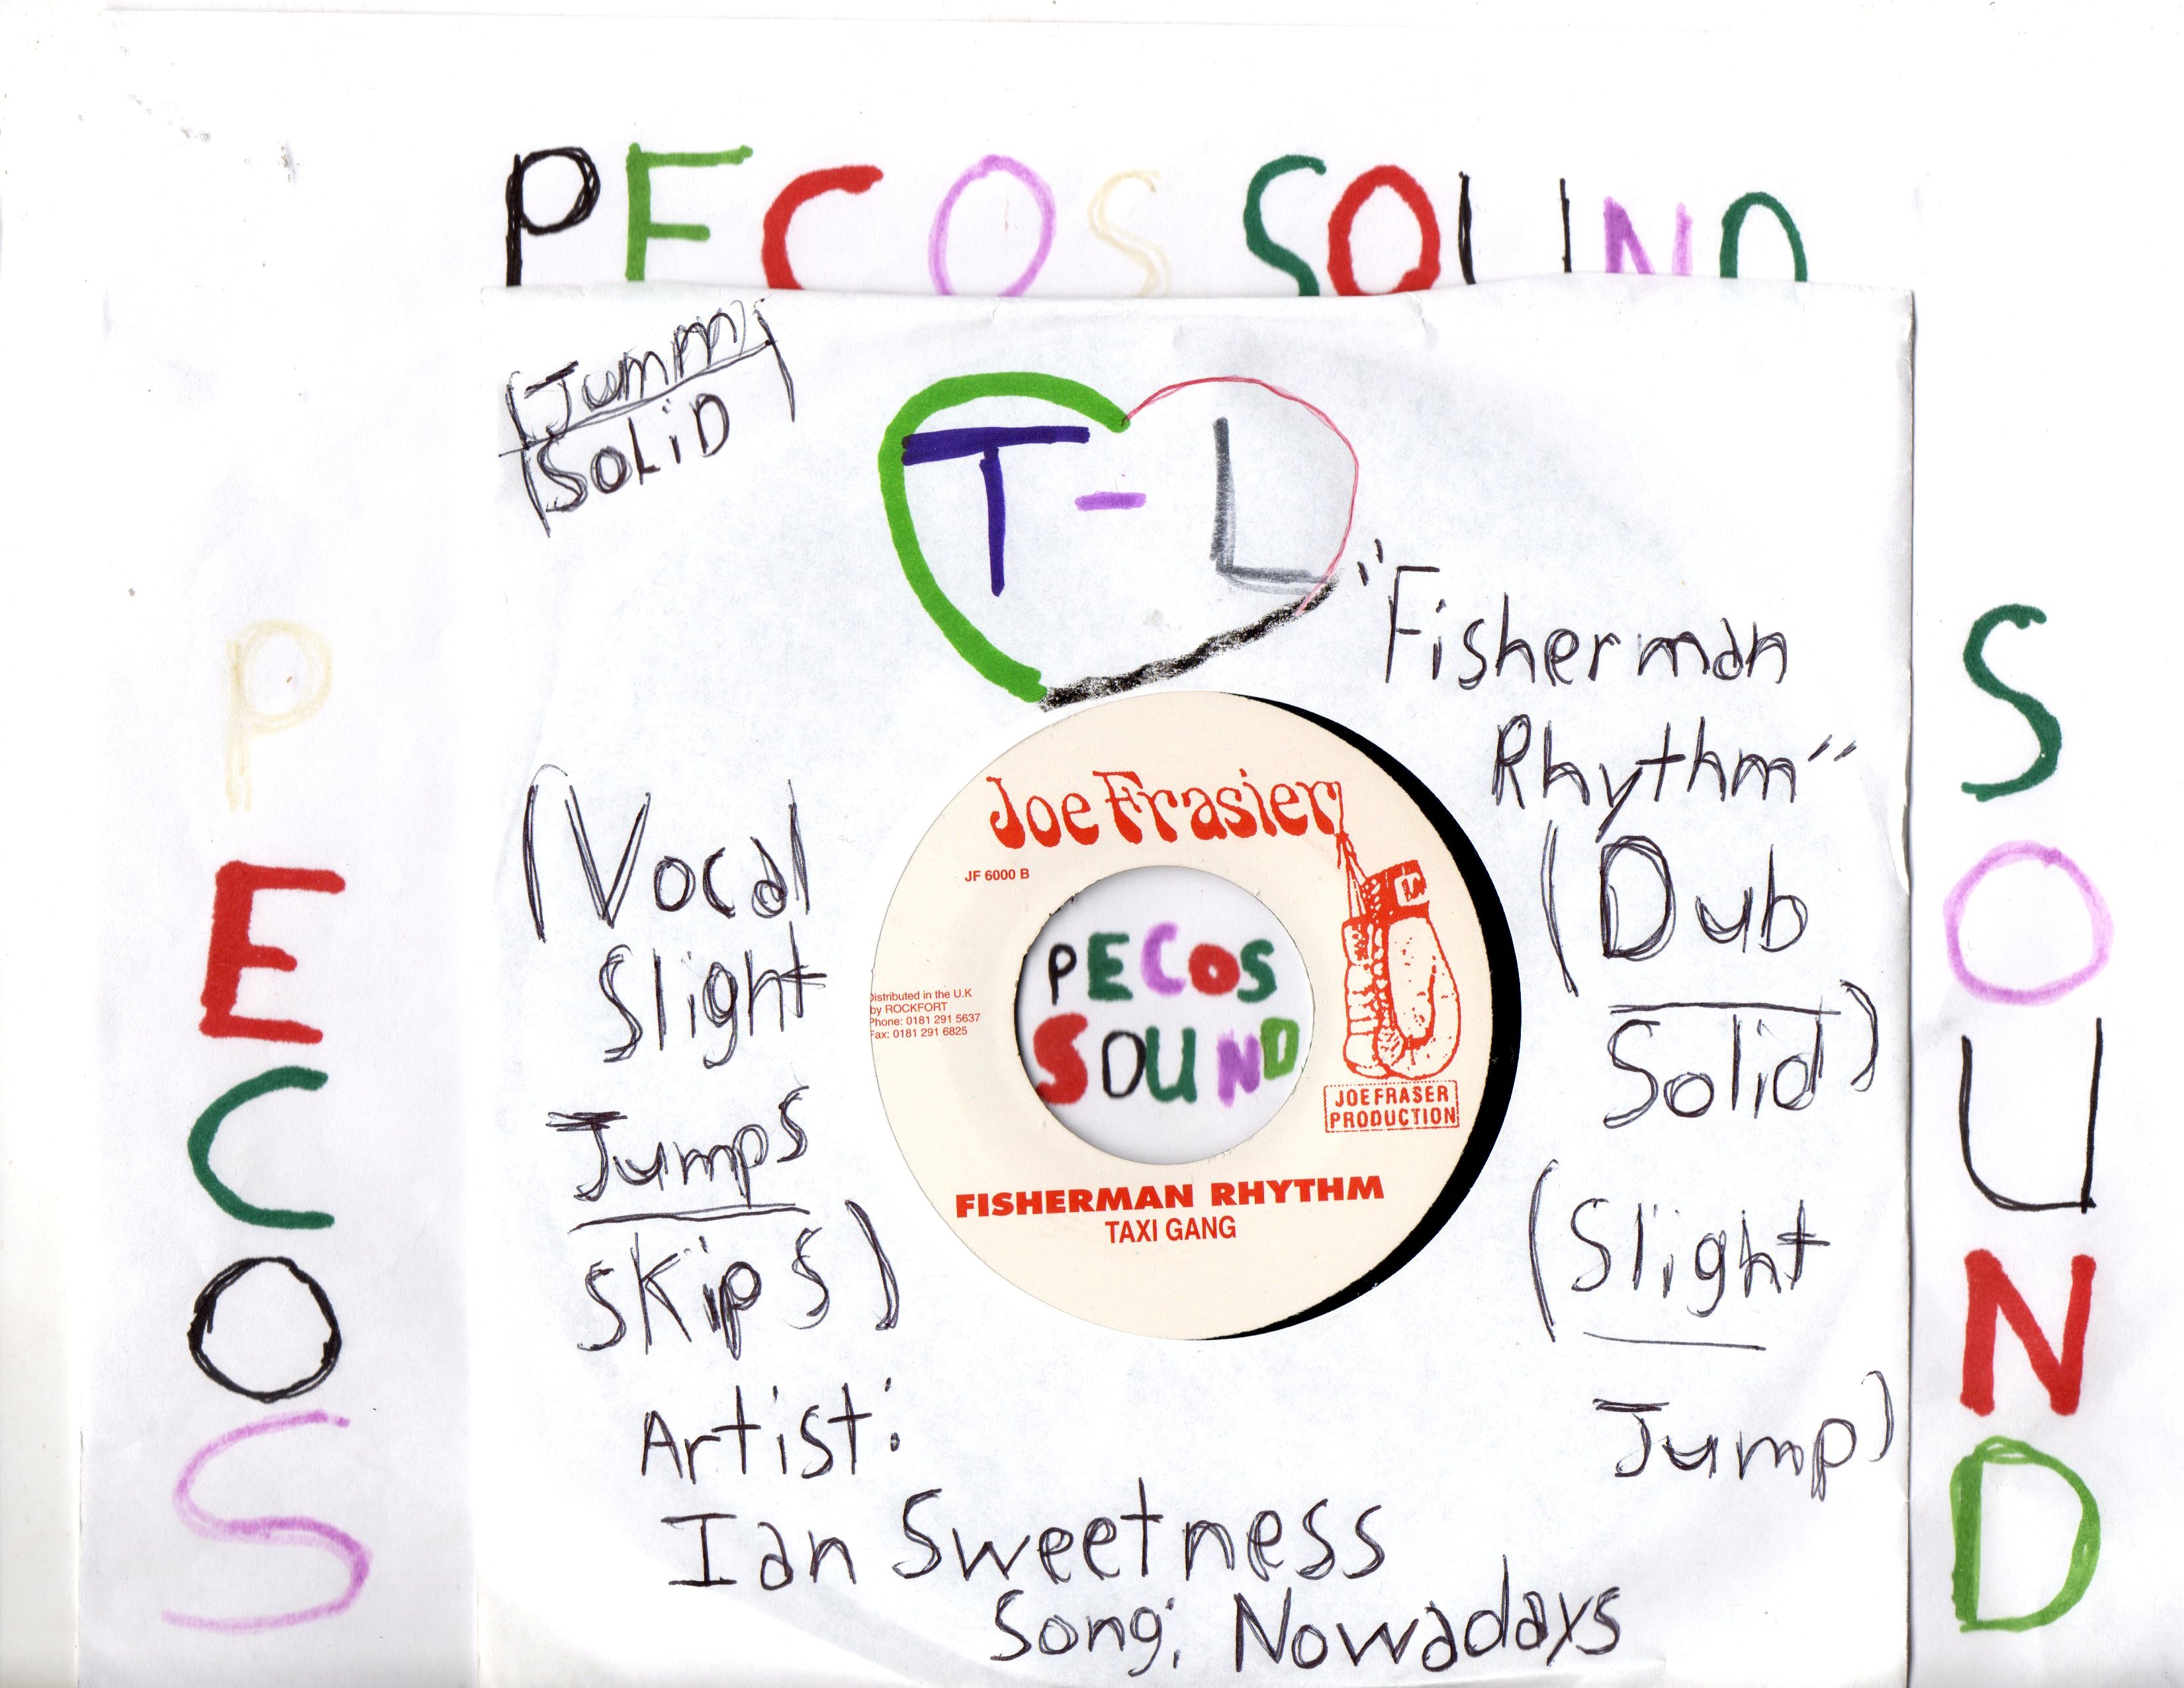 PECOS SOUND
SOLiD
T-L
"Fisherman
Rhythm"
(Dub
Solid)
(Slight
Jump)
(Vocal
Slight
Jumps
Skips)
Joe Frasier
JF 6000 B
Distributed in the U.K
by ROCKFORT
Phone: 0181 291 5637
Fax: 0181 291 6825
PECOS
SOUND
JOE FRASER
PRODUCTION
FISHERMAN RHYTHM
TAXI GANG
Artist:
Ian Sweetness
Song; Nowadays
PECOS
SOUND